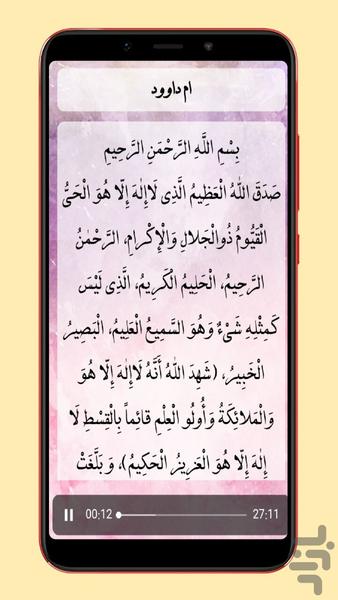 ام داوود
بِسْمِ اللَّهِ الرَّحْمَنِ الرَّحِيمِ
صَدَقَ اللَّهُ الْعَظِيمُ الَّذِي لَاإِلهَ إِلَّا هُوَ الْحَيُّ
الْقَيُّومُ ذُوالْجَلالِ وَالْإِكْرامِ، الرَّحْمٰنُ
الرَّحِيمُ، الْحَلِيمُ الْكَرِيمُ، الَّذِي لَيْسَ
كَمِثْلِهِ شَيْءٌ وَهُوَ السَّمِيعُ الْعَلِيمُ، الْبَصِيرُ
الْخَبِيرُ، (شَهِدَ اللهُ أَنَّهُ لَاإِلهَ إِلَّا هُوَ
وَالْمَلائِكَةُ وَأُولُو الْعِلْمِ قائِماً بِالْقِسْطِ لَا
إِلهَ إِلَّا هُوَ الْعَزِيزُ الْحَكِيمُ)، وَ بَلَّغَتْ
00:12 27:11